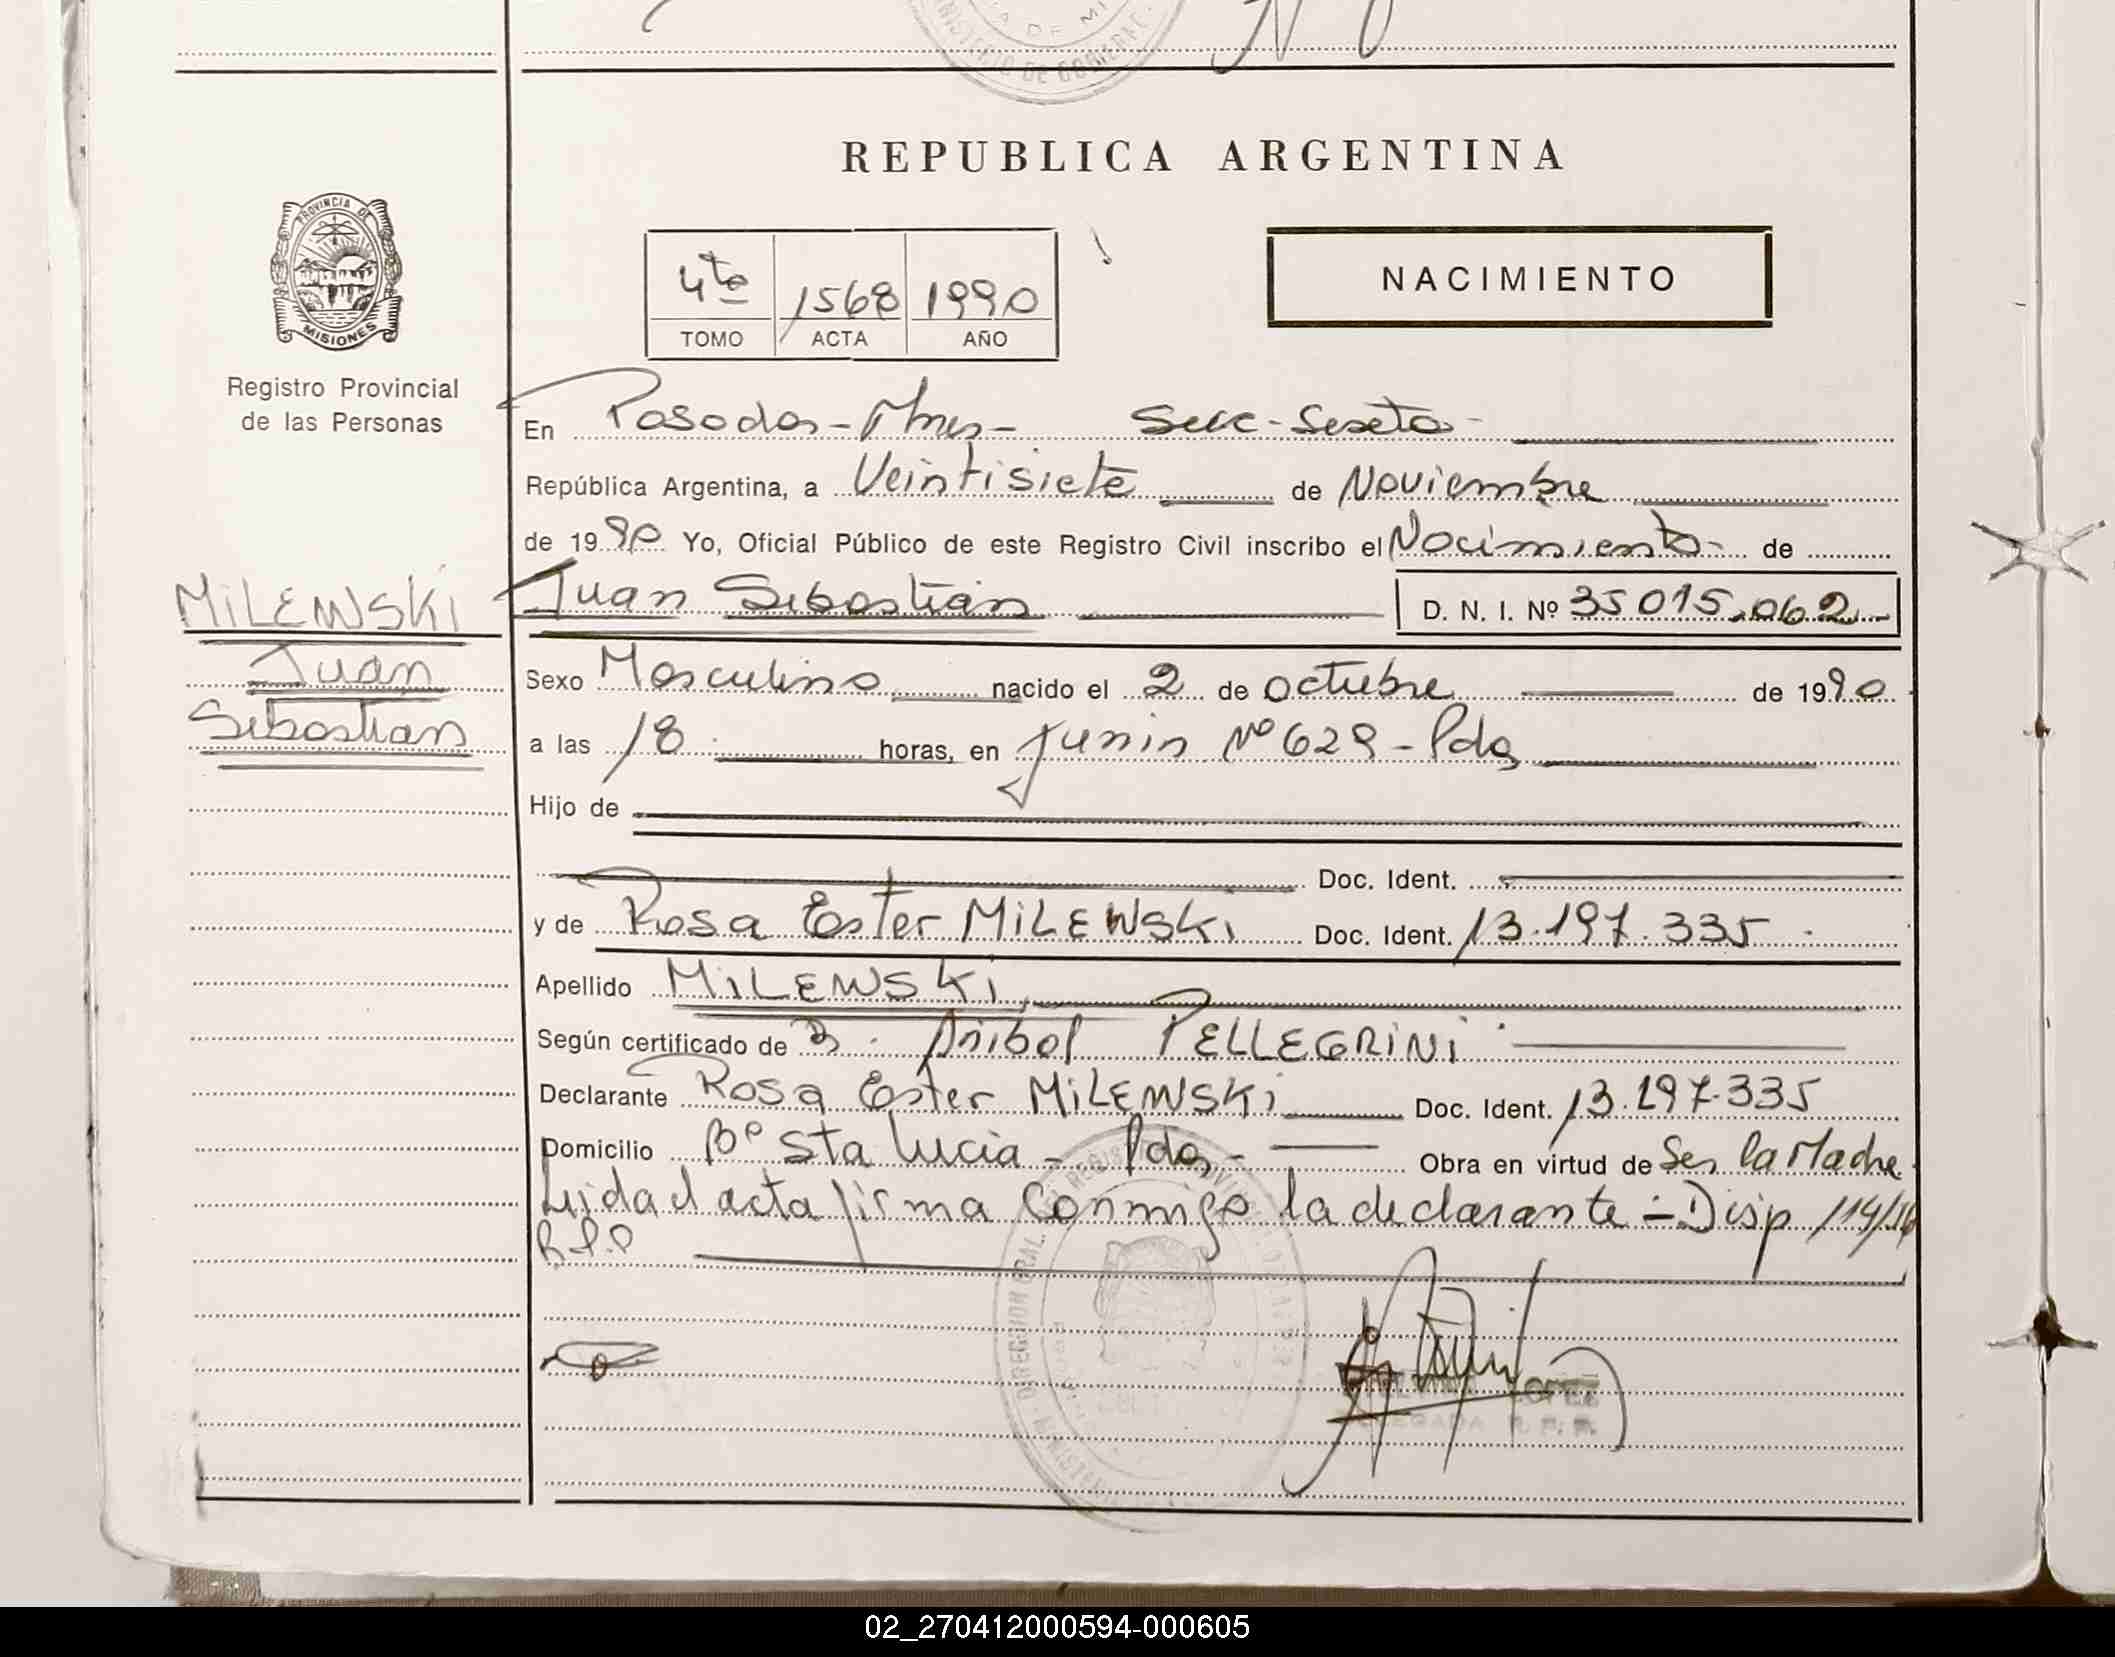 MINISTERIO DE GOBIERNO
REPUBLICA ARGENTINA
PROVINCIA DE
MISIONES
Registro Provincial
de las Personas
4to 1568 1990
TOMO ACTA AÑO
NACIMIENTO
En Posadas - Mnes - Secc - Sexta -
República Argentina, a Veintisiete de Noviembre
de 1990 Yo, Oficial Público de este Registro Civil inscribo el Nacimiento - de
Juan Sebastián D. N. I. Nº 35015.062
MILEWSKI
Juan
Sebastian
Sexo Masculino nacido el 2 de octubre de 1990
a las 18 horas, en Junin Nº 629 - Pdas
Hijo de
Doc. Ident.
y de Rosa Ester MILEWSKI Doc. Ident. 13.197.335
Apellido MILEWSKI
Según certificado de Anibal PELLEGRINI
Declarante Rosa Ester MILEWSKI Doc. Ident. 13.197.335
Domicilio Bº Sta Lucia - Pdas - Obra en virtud de Ser la Madre
Leida el acta firma conmigo la declarante - Disp 114/
DELEGADA R. P. P.
02_270412000594-000605